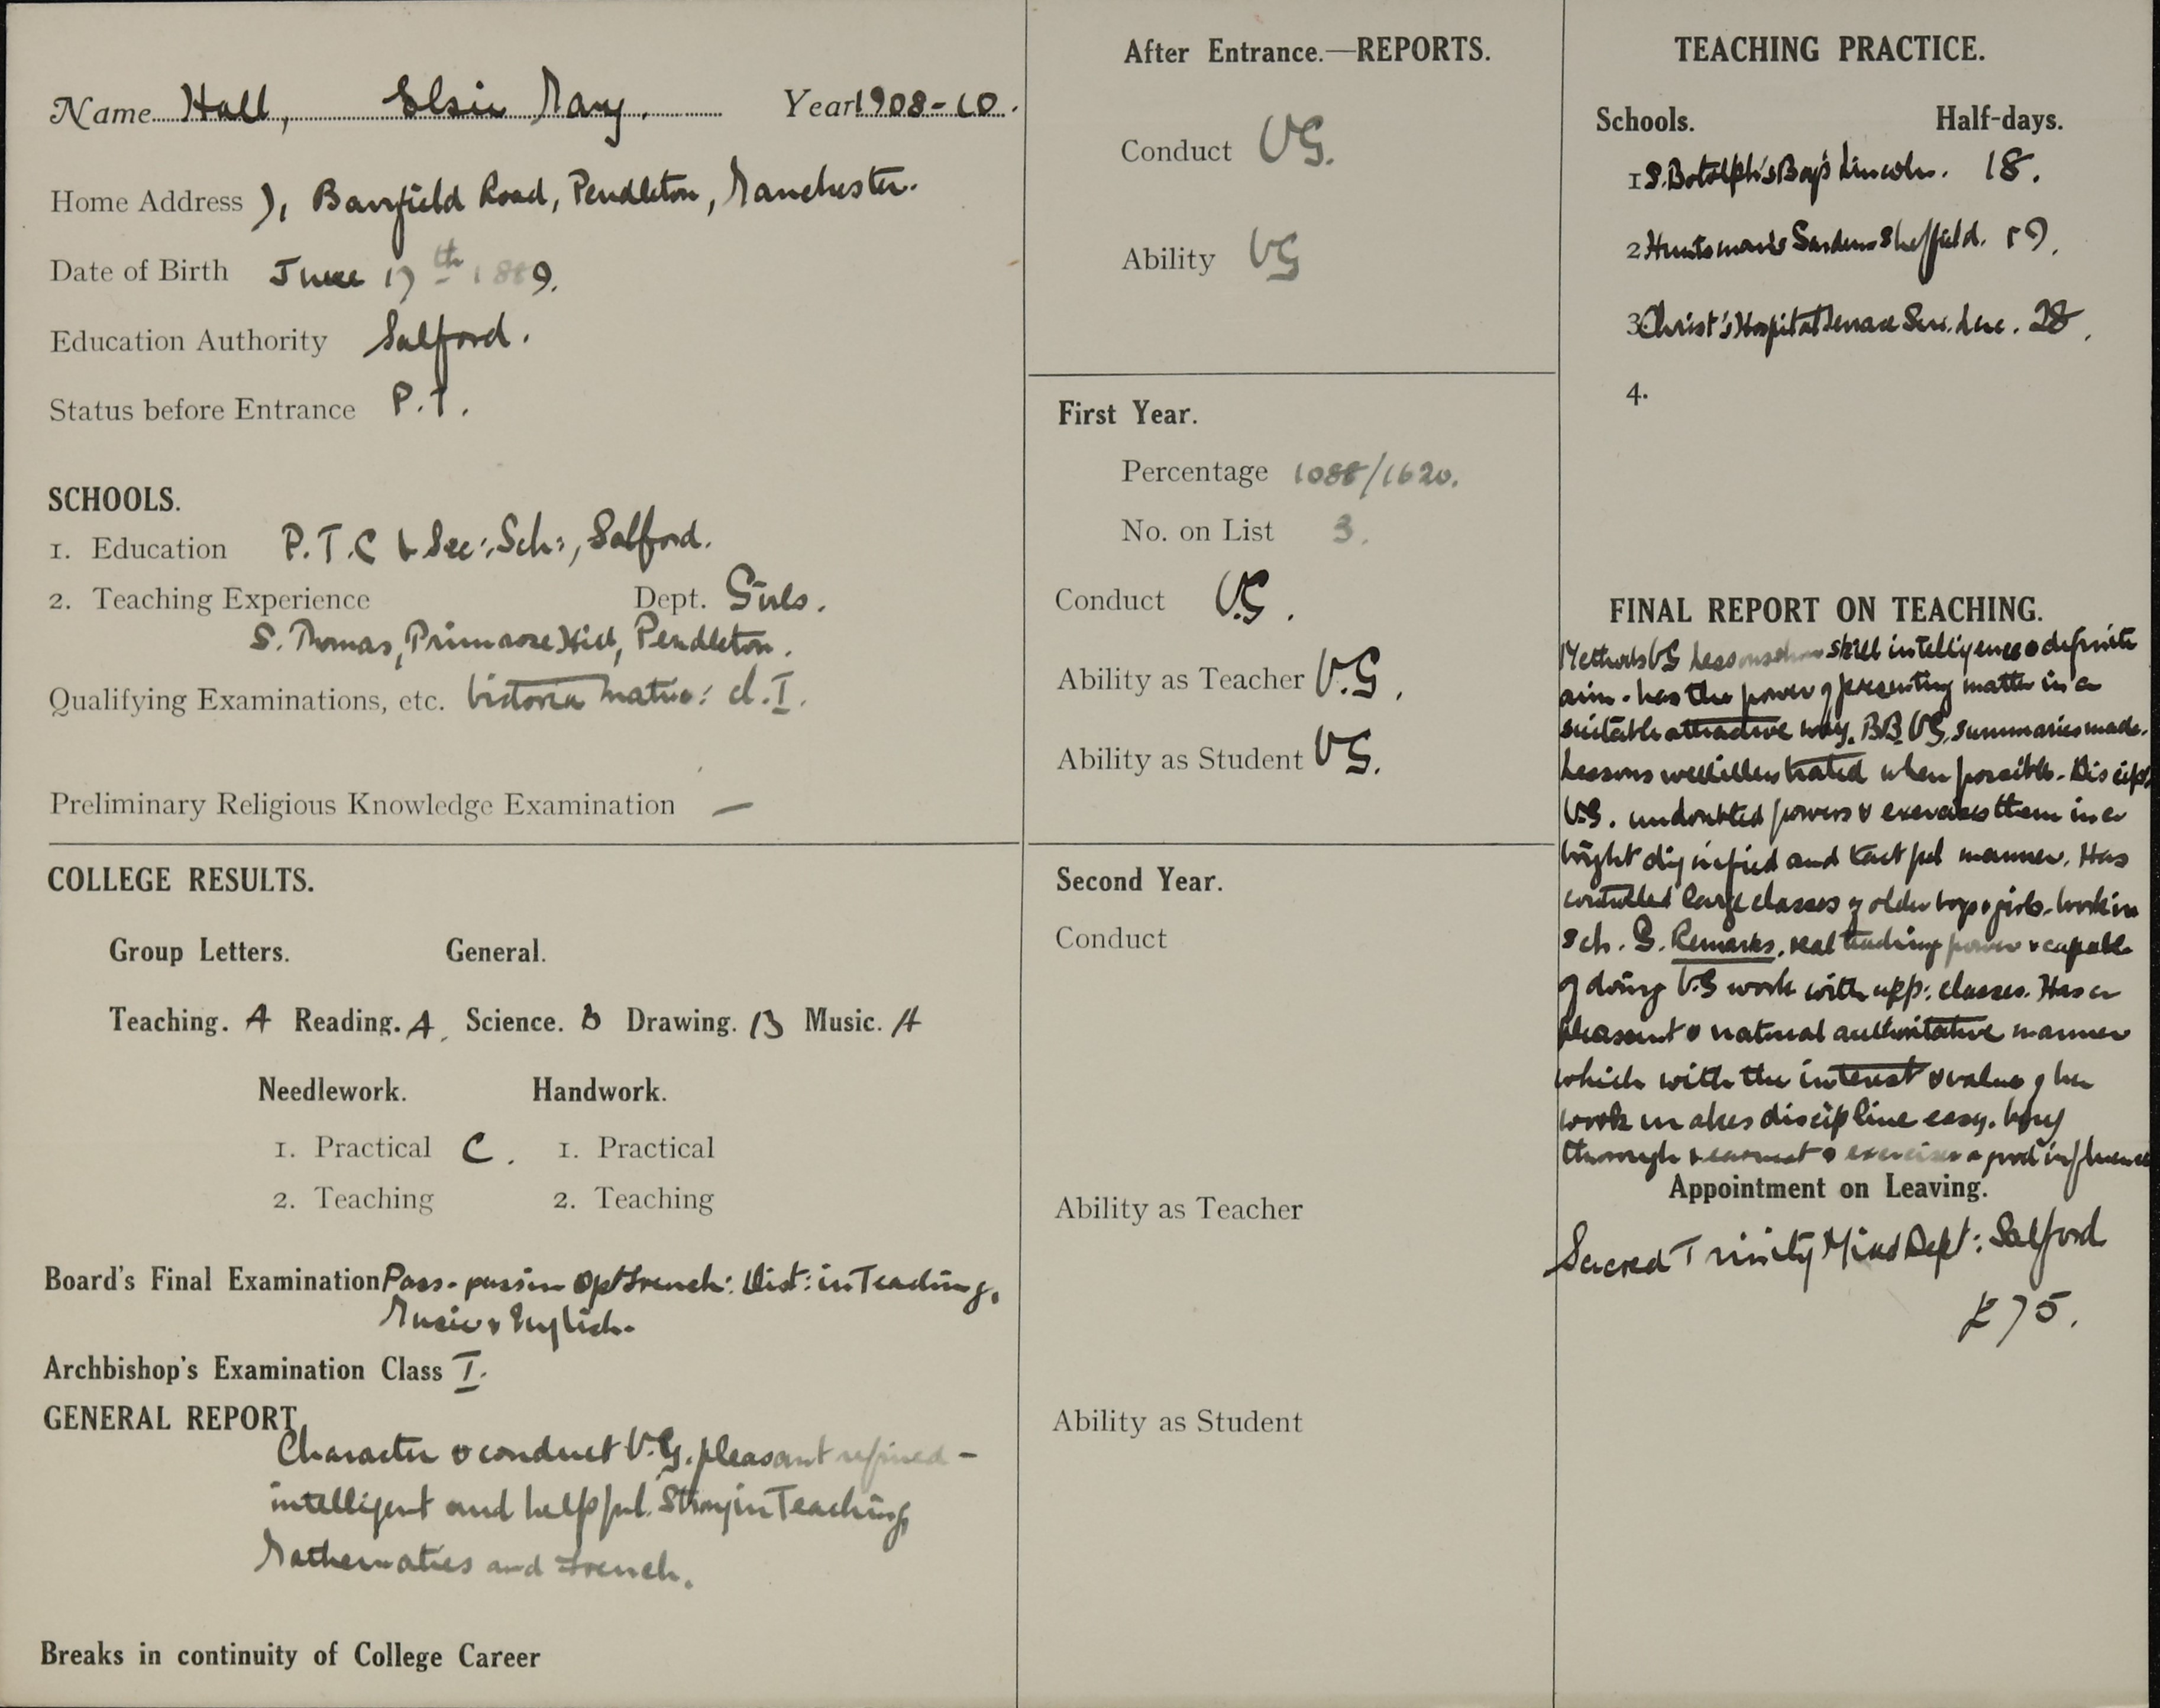 Name Hall, Elsie Mary. Year 1908-10.
Home Address 7, Barrfield Road, Pendleton, Manchester.
Date of Birth June 17th 1889.
Education Authority Salford.
Status before Entrance P.T.
SCHOOLS.
1. Education P.T.C & Sec: Sch:, Salford.
2. Teaching Experience Dept. Girls.
S. Thomas, Primrose Hill, Pendleton.
Qualifying Examinations, etc. Victoria Matric: cl. I.
Preliminary Religious Knowledge Examination —
COLLEGE RESULTS.
Group Letters. General.
Teaching. A Reading. A. Science. B Drawing. B Music. A
Needlework. Handwork.
1. Practical C. 1. Practical
2. Teaching 2. Teaching
Board's Final Examination Pass - pass in Opt French: Dist: in Teaching,
Music & English.
Archbishop's Examination Class I.
GENERAL REPORT.
Character & conduct V.G. pleasant refined -
intelligent and helpful. Strong in Teaching,
Mathematics and French.
Breaks in continuity of College Career
After Entrance.—REPORTS.
Conduct VG.
Ability VG
First Year.
Percentage 1088/1620.
No. on List 3.
Conduct V.G.
Ability as Teacher V.G.
Ability as Student VG.
Second Year.
Conduct
Ability as Teacher
Ability as Student
TEACHING PRACTICE.
Schools. Half-days.
1 S. Botolph's Boys Lincoln. 18.
2 Huntsman's Gardens Sheffield. 19.
3. Christ's Hospital Terrace Linc. 28.
4.
FINAL REPORT ON TEACHING.
Methods VG Lessons show skill intelligence & definite
aim - has the power of presenting matter in a
suitable attractive way. BB. VG. summaries made.
Lessons well illustrated when possible. Discip:
V.G. undoubted powers & exercises them in a
bright dignified and tactful manner. Has
controlled large classes of older boys & girls. Work in
Sch. G. Remarks, real teaching power & capable
of doing V.G work with upp: classes. Has a
pleasant & natural authoritative manner
which with the interest & value of her
work makes discipline easy. Very
thorough & earnest & exercises a good influence
Appointment on Leaving.
Sacred Trinity Mixed Dept: Salford
£75.